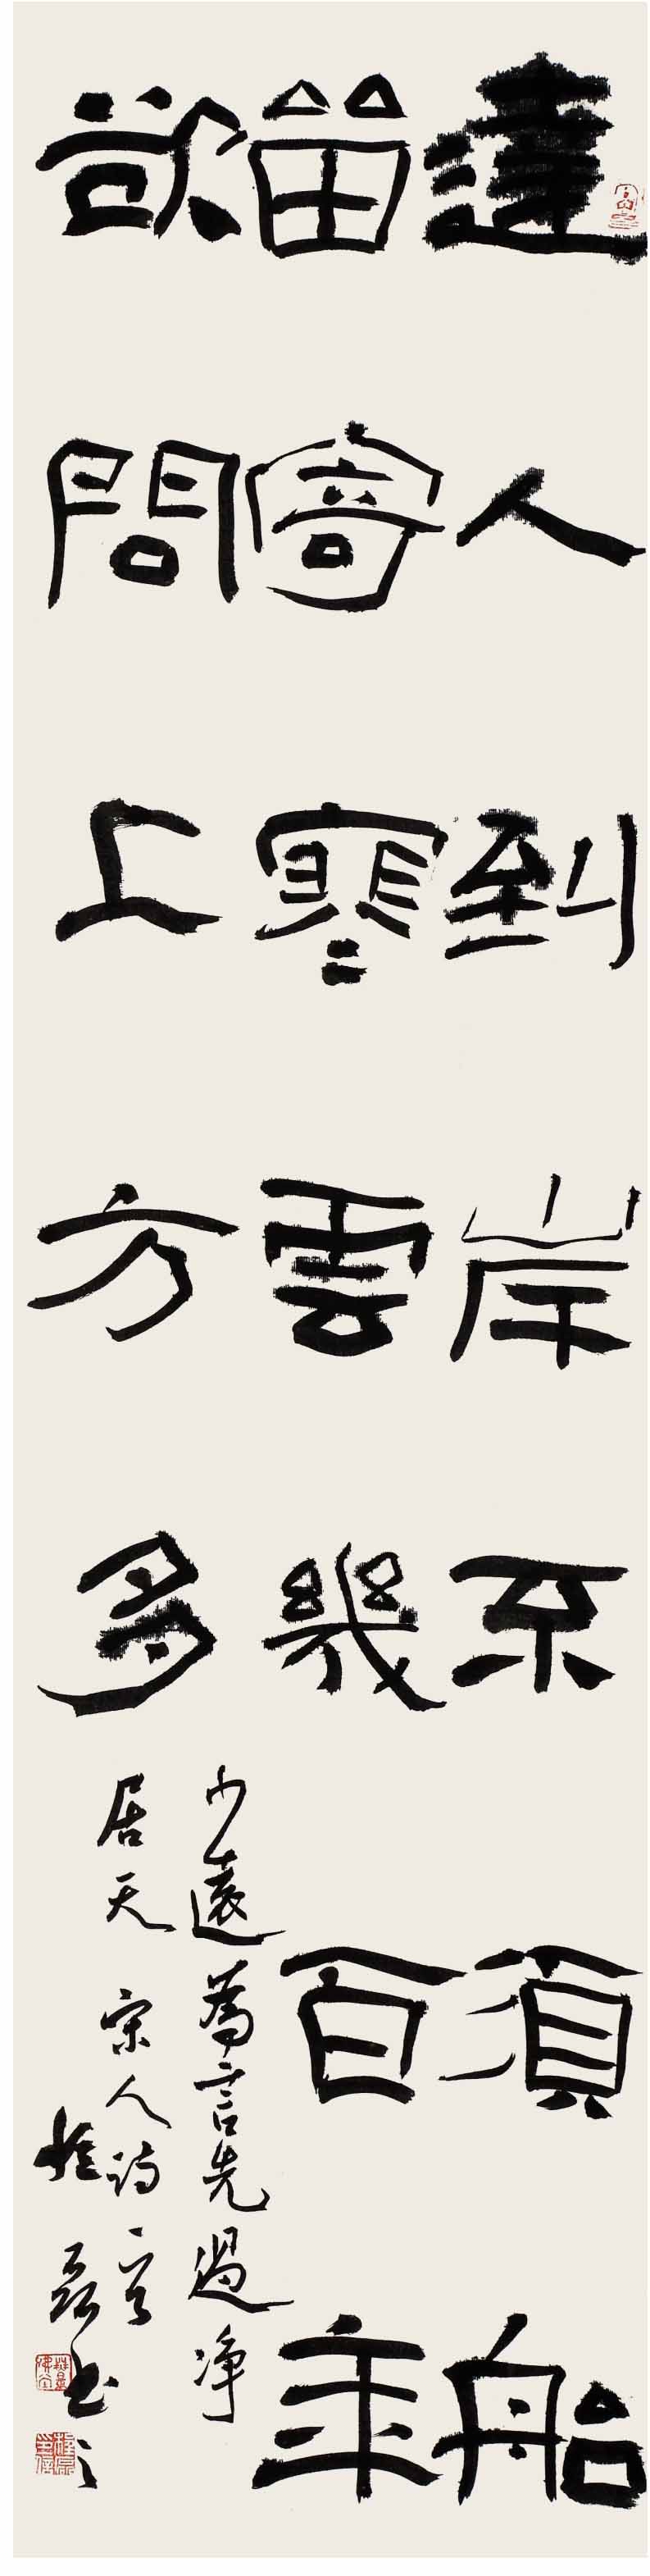 達人到岸不須船
留寄寒雲幾百年
欲問上方多
少遠為言先過净
居天 宋人詩一首
磊书之